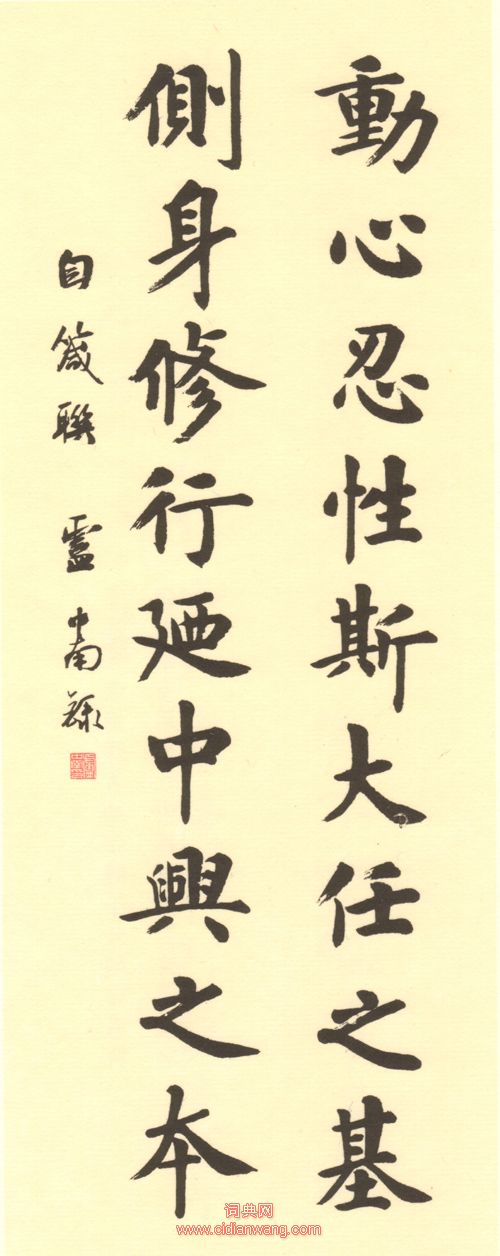 動心忍性斯大任之基
側身修行廼中興之本
自箴聯 盧中南錄
词典网
www.cidianwang.com